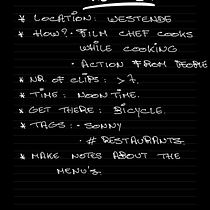 * LOCATION: WESTENDE
* HOW? • FILM CHEF COOKS
WHILE COOKING
• ACTION FROM PEOPLE
* NR. OF CLIPS: > 7.
* TIME: NOON TIME.
* GET THERE: BICYCLE.
* TAGS: • SONNY
• # RESTAURANTS.
* MAKE NOTES ABOUT THE
MENU'S.